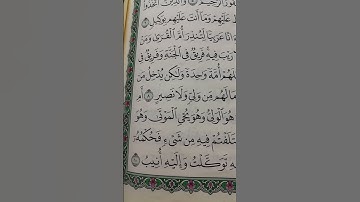 فُورُ ٱلرَّحِيمُ ۝ وَٱلَّذِينَ ٱتَّخَذُوا۟
ظٌ عَلَيْهِمْ وَمَآ أَنتَ عَلَيْهِم بِوَكِيلٍ ۝
انًا عَرَبِيًّا لِّتُنذِرَ أُمَّ ٱلْقُرَىٰ وَمَنْ
رَيْبَ فِيهِ فَرِيقٌ فِى ٱلْجَنَّةِ وَفَرِيقٌ فِى
لَهُمْ أُمَّةً وَٰحِدَةً وَلَٰكِن يُدْخِلُ مَن
مَا لَهُم مِّن وَلِىٍّ وَلَا نَصِيرٍ ۝ أَمِ
هُوَ ٱلْوَلِىُّ وَهُوَ يُحْىِ ٱلْمَوْتَىٰ وَهُوَ
خْتَلَفْتُمْ فِيهِ مِن شَىْءٍ فَحُكْمُهُۥٓ
هِ تَوَكَّلْتُ وَإِلَيْهِ أُنِيبُ ۝